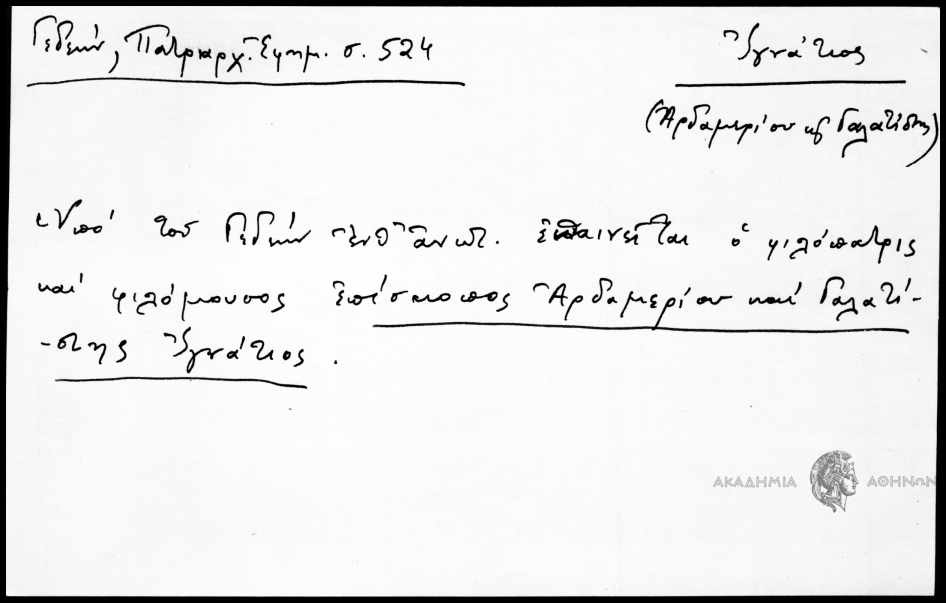 Γεδεών, Πατριαρχ. Ἐφημ. σ. 524
Ἰγνάτιος
(Ἀρδαμερίου κ Γαλατίστης)
Ὑπό τοῦ Γεδεών ἔνθ' ἀνωτ. ἐπαινεῖται ὁ φιλόπατρις
καί φιλόμουσος ἐπίσκοπος Ἀρδαμερίου καί Γαλατί-
-στης Ἰγνάτιος.
ΑΚΑΔΗΜΙΑ ΑΘΗΝΩΝ